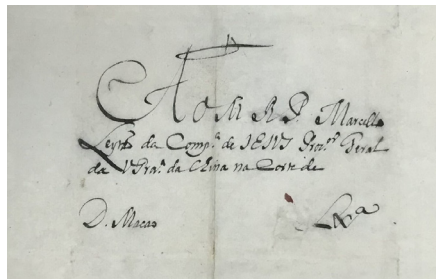 Ao M R P. Marcello
Leytᵒ da Comp.ª de IESVS Proc.ᵒʳ Geral
da V Pra.ª da China na Corte de
D. Macao Lxª